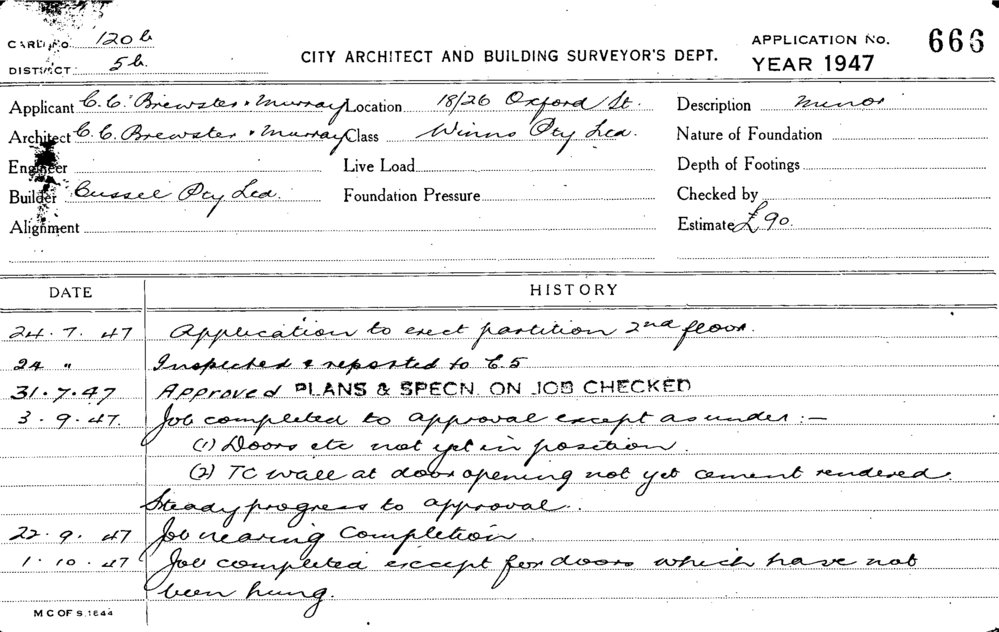 CARD No. 120b
DISTRICT 5b.
CITY ARCHITECT AND BUILDING SURVEYOR'S DEPT.
APPLICATION No. 666
YEAR 1947
Applicant C.C. Brewster & Murray Location 18/26 Oxford St. Description minor
Architect C.C. Brewster & Murray Class Winns Pty Ltd. Nature of Foundation
Engineer Live Load Depth of Footings
Builder Pty Ltd. Foundation Pressure Checked by
Alignment Estimate £90.
DATE HISTORY
24.7.47 Application to erect partition 2nd floor.
24 " Inspected & reported to C.5
31.7.47 Approved PLANS & SPECN. ON JOB CHECKED
3.9.47. Job completed to approval except as under:—
(1) Doors etc not yet in position
(2) TC wall at door opening not yet cement rendered.
Steady progress to approval.
22.9.47 Job nearing completion
1.10.47 Job completed except for doors which have not
been hung.
M C OF S. 1844